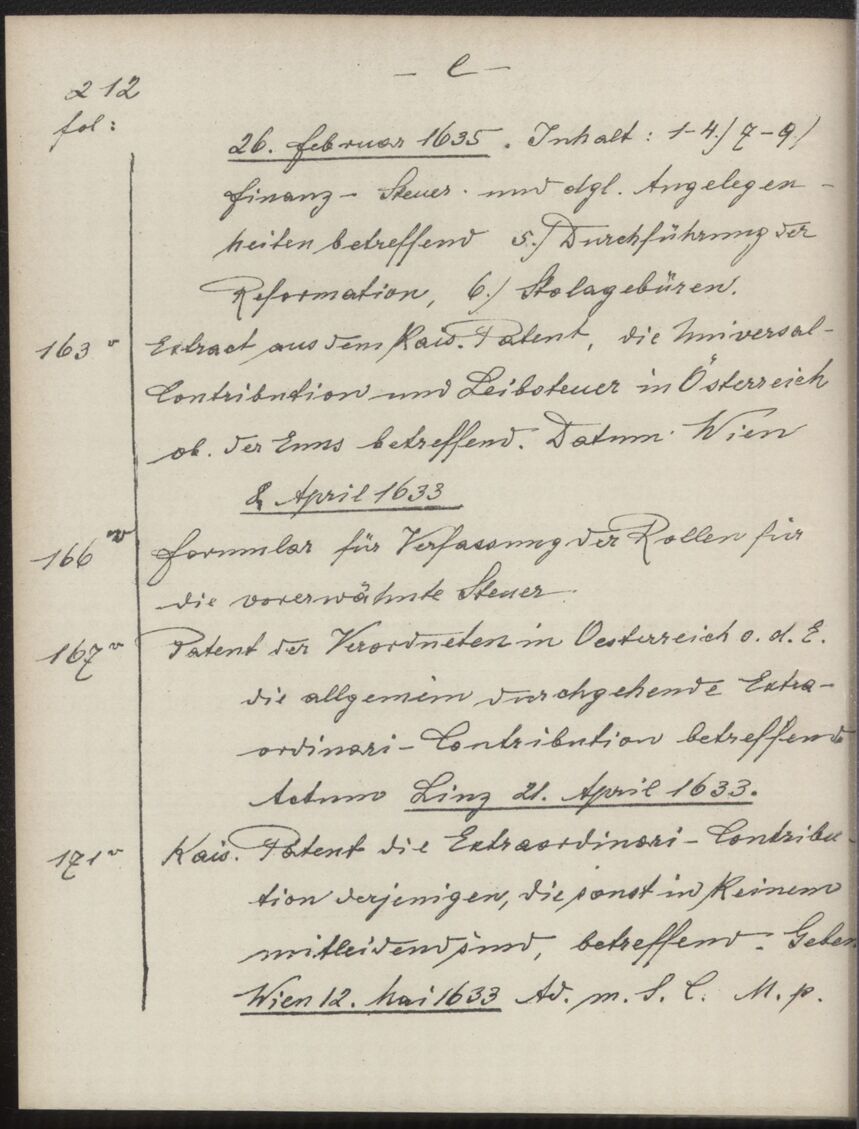 212
– C –
fol:
26. Februar 1635. Inhalt: 1–4./ 7–9./
Finanz- Steuer- und dgl. Angelegen-
heiten betreffend 5./ Durchführung der
Reformation, 6./ Stolagebüren.
163 v Extract aus dem Kais. Patent, die Universal-
Contribution und Leibsteuer in Österreich
ob. der Enns betreffend. Datum Wien
8 April 1633
166 v Formular für Verfassung der Rollen für
die vorerwähnte Steuer.
167 v Patent der Verordneten in Oesterreich o. d. E.
die allgemein durchgehende Extra-
ordinari-Contribution betreffend
Actum Linz 21. April 1633.
171 v Kais. Patent die Extraordinari-Contribu-
tion derjenigen, die sonst in keinem
mitleidend sind, betreffend. Geben
Wien 12. Mai 1633 Ad. m. S. C. M. p.